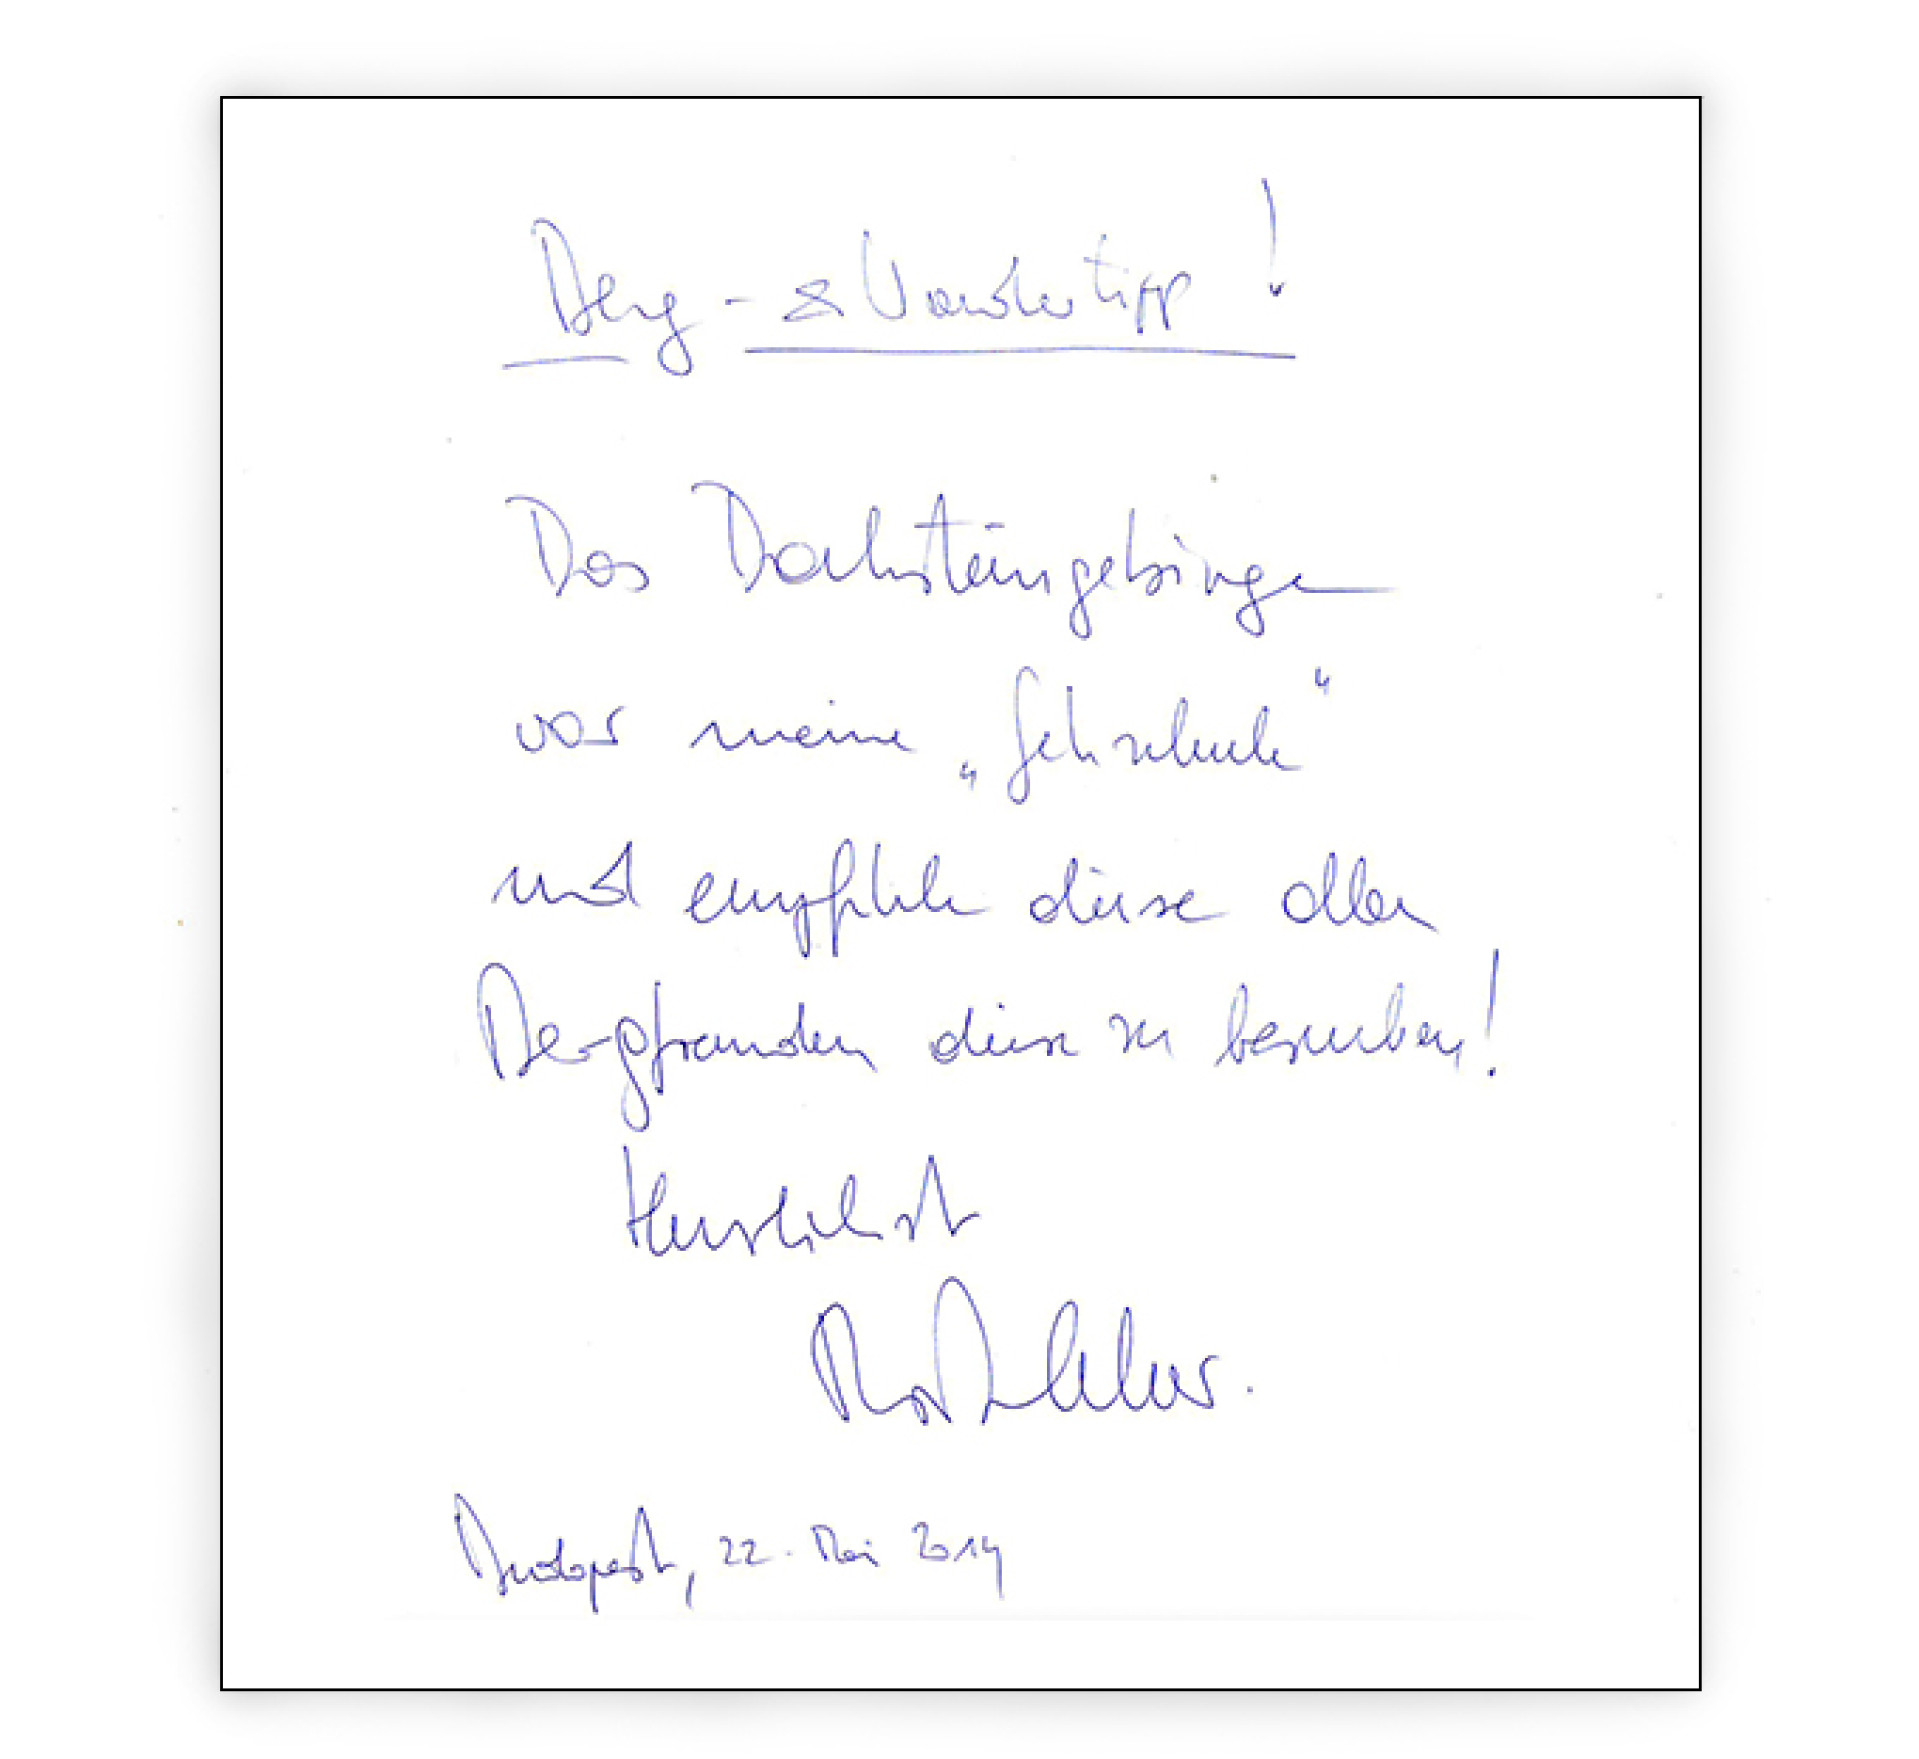 Berg- & Wandertipp!
Das Dachsteingebirge
war meine „Gehschule“
und empfehle diese allen
Bergfreunden diese zu besuchen!
Herzlichst
Budapest, 22. Mai 2014